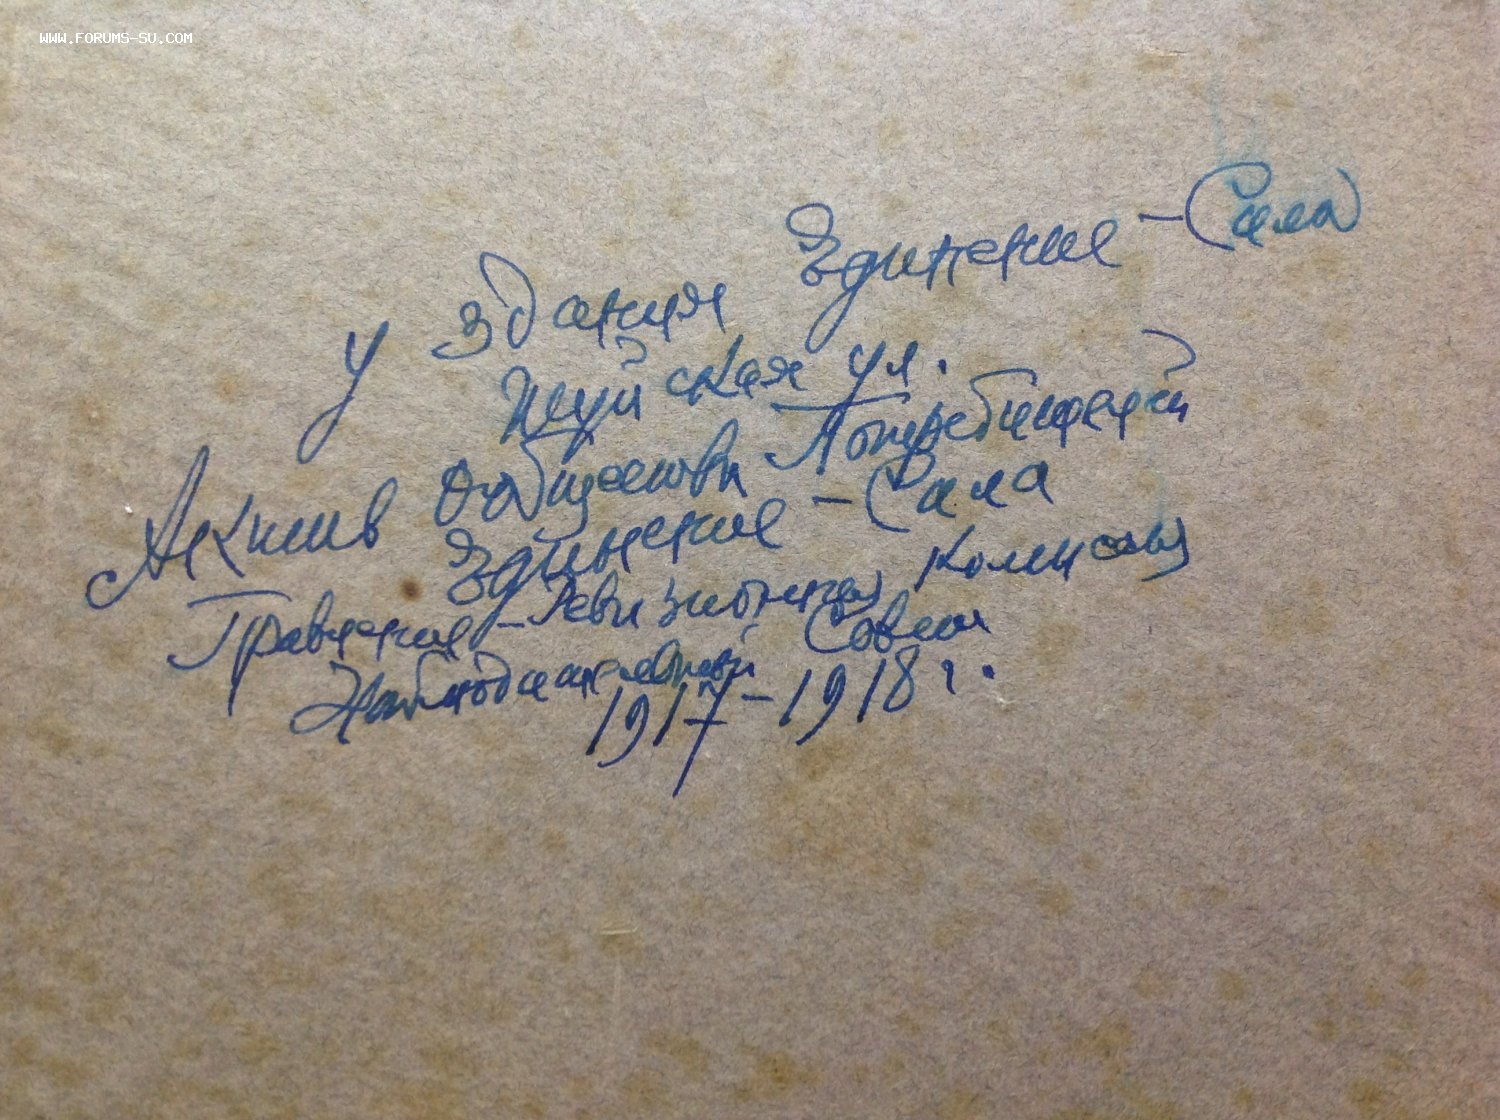 WWW.FORUMS-SU.COM
У здания Единение-Сила
Шуйская ул.
Актив Общества Потребителей
Единение-Сила
Правление-Ревизионная комиссия
Наблюдательный Совет
1917-1918 г.